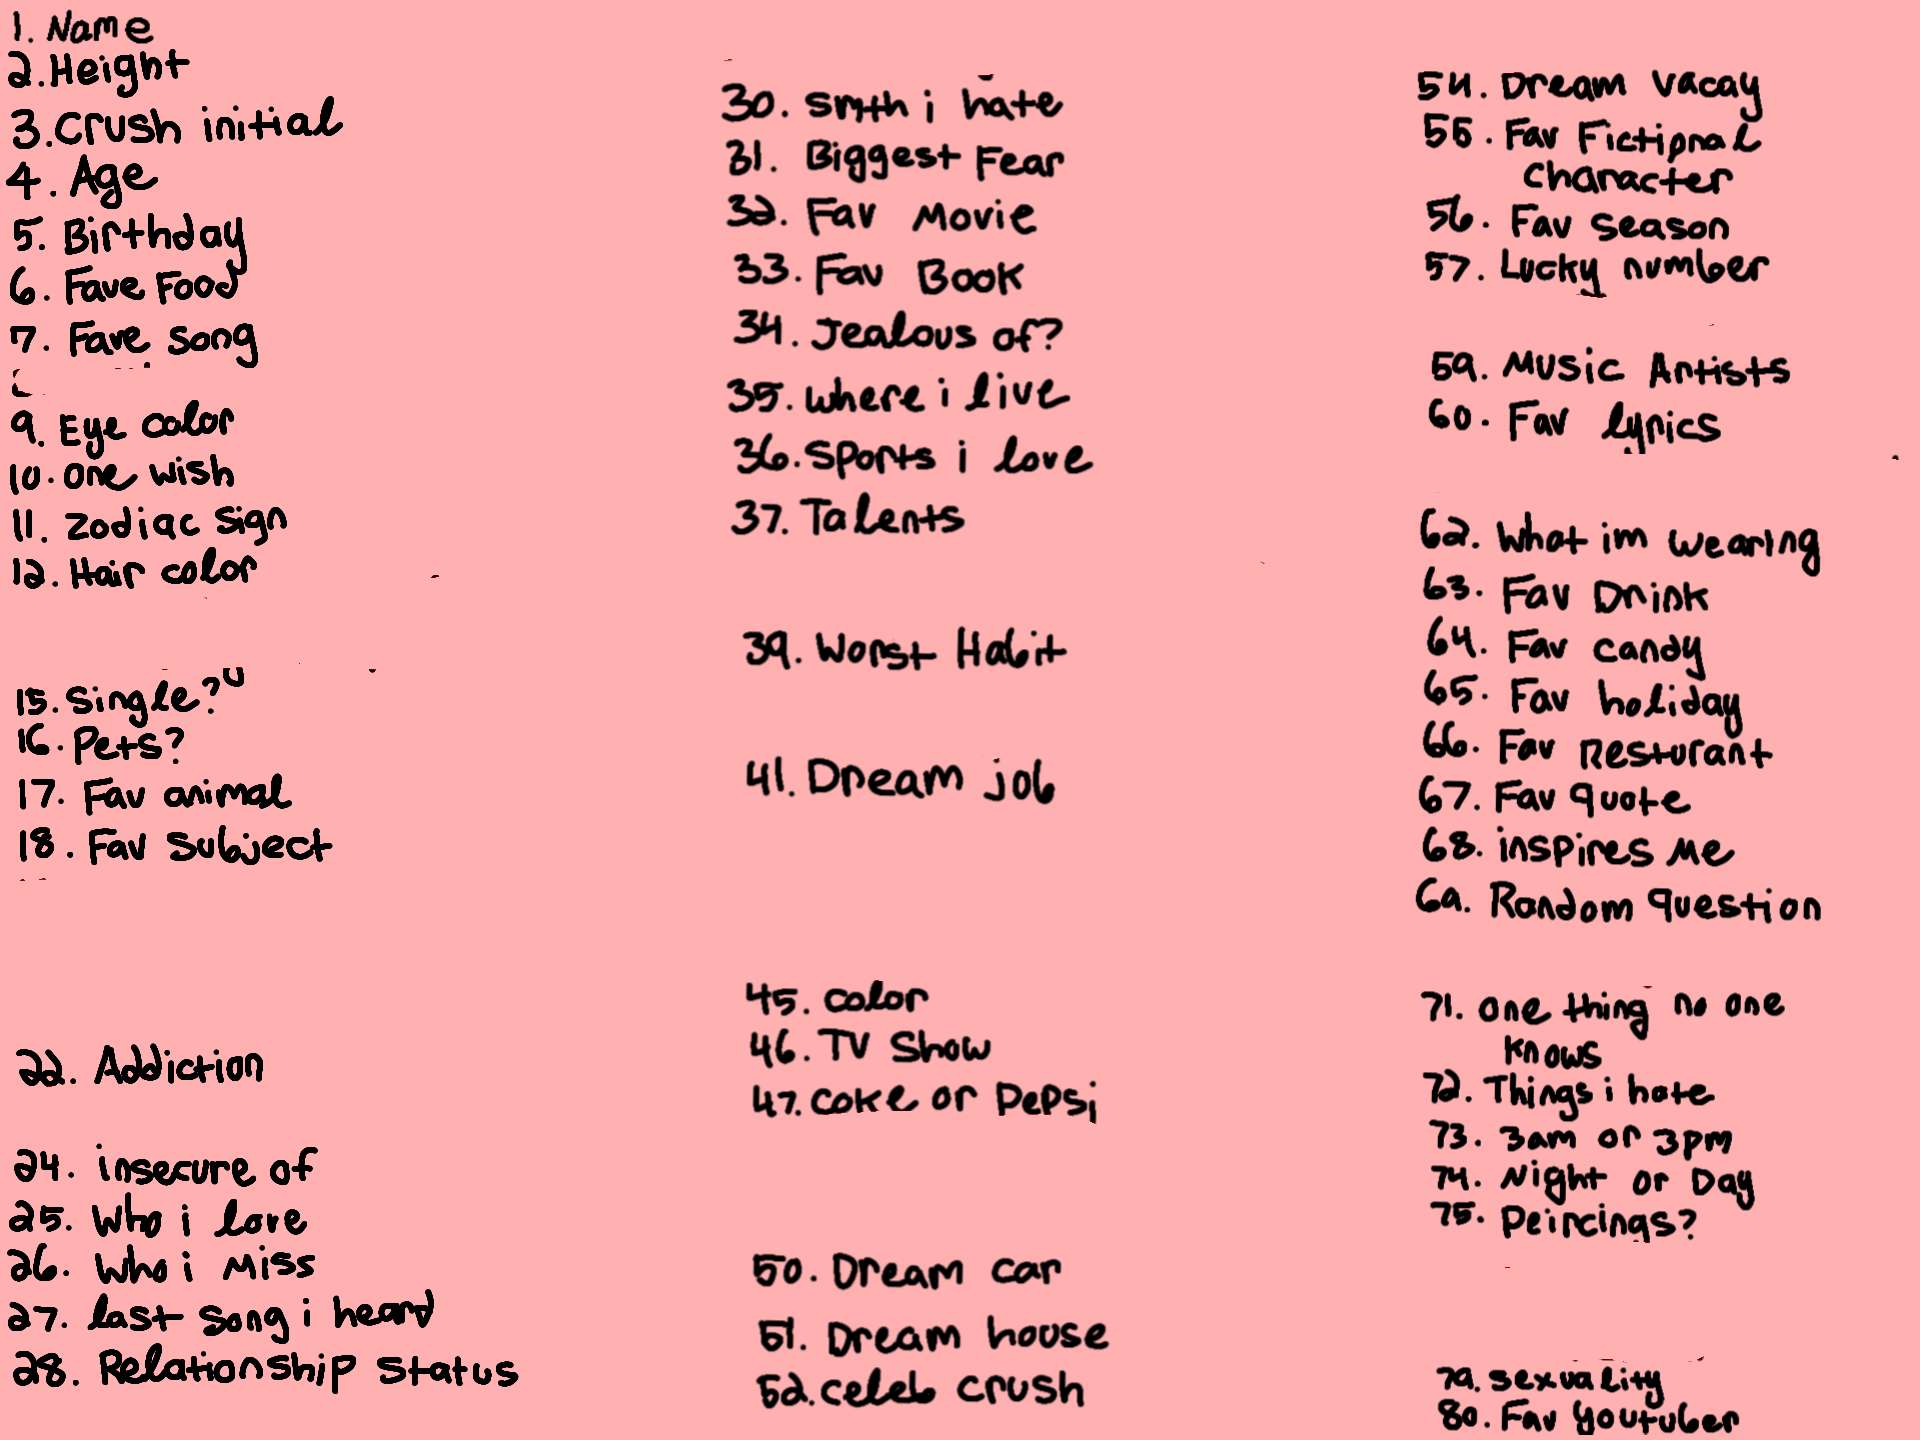 1. Name
2. Height
3. Crush initial
4. Age
5. Birthday
6. Fave Food
7. Fave song
9. Eye color
10. one wish
11. zodiac sign
12. Hair color
15. Single?
16. Pets?
17. Fav animal
18. Fav subject
22. Addiction
24. insecure of
25. Who i love
26. Who i Miss
27. last song i heard
28. Relationship status
30. smth i hate
31. Biggest Fear
32. Fav Movie
33. Fav Book
34. Jealous of?
35. where i live
36. Sports i love
37. Talents
39. Worst Habit
41. Dream job
45. color
46. TV Show
47. Coke or Pepsi
50. Dream car
51. Dream house
52. celeb crush
54. Dream vacay
55. Fav Fictional
character
56. Fav season
57. Lucky number
59. Music Artists
60. Fav lyrics
62. What im wearing
63. Fav Drink
64. Fav candy
65. Fav holiday
66. Fav Resturant
67. Fav quote
68. inspires me
69. Random question
71. one thing no one
knows
72. Things i hate
73. 3am or 3pm
74. Night or Day
75. Peircings?
79. sexuality
80. Fav youtuber